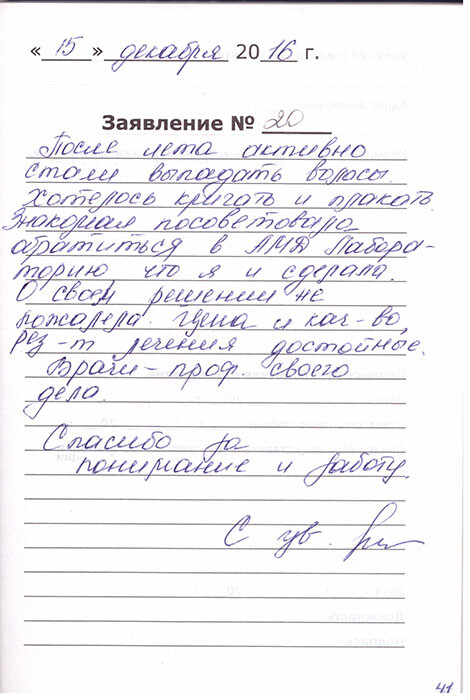 « 15 » декабря 2016 г.
Заявление № 20
После лета активно
стали выпадать волосы.
Хотелось кричать и плакать.
Знакомая посоветовала
обратиться в АМД Лабора-
торию что я и сделала.
О своем решении не
пожалела. Цена и кач-во,
рез-т лечения достойные.
Врачи - проф. своего
дела.
Спасибо за
понимание и заботу.
С ув.
41